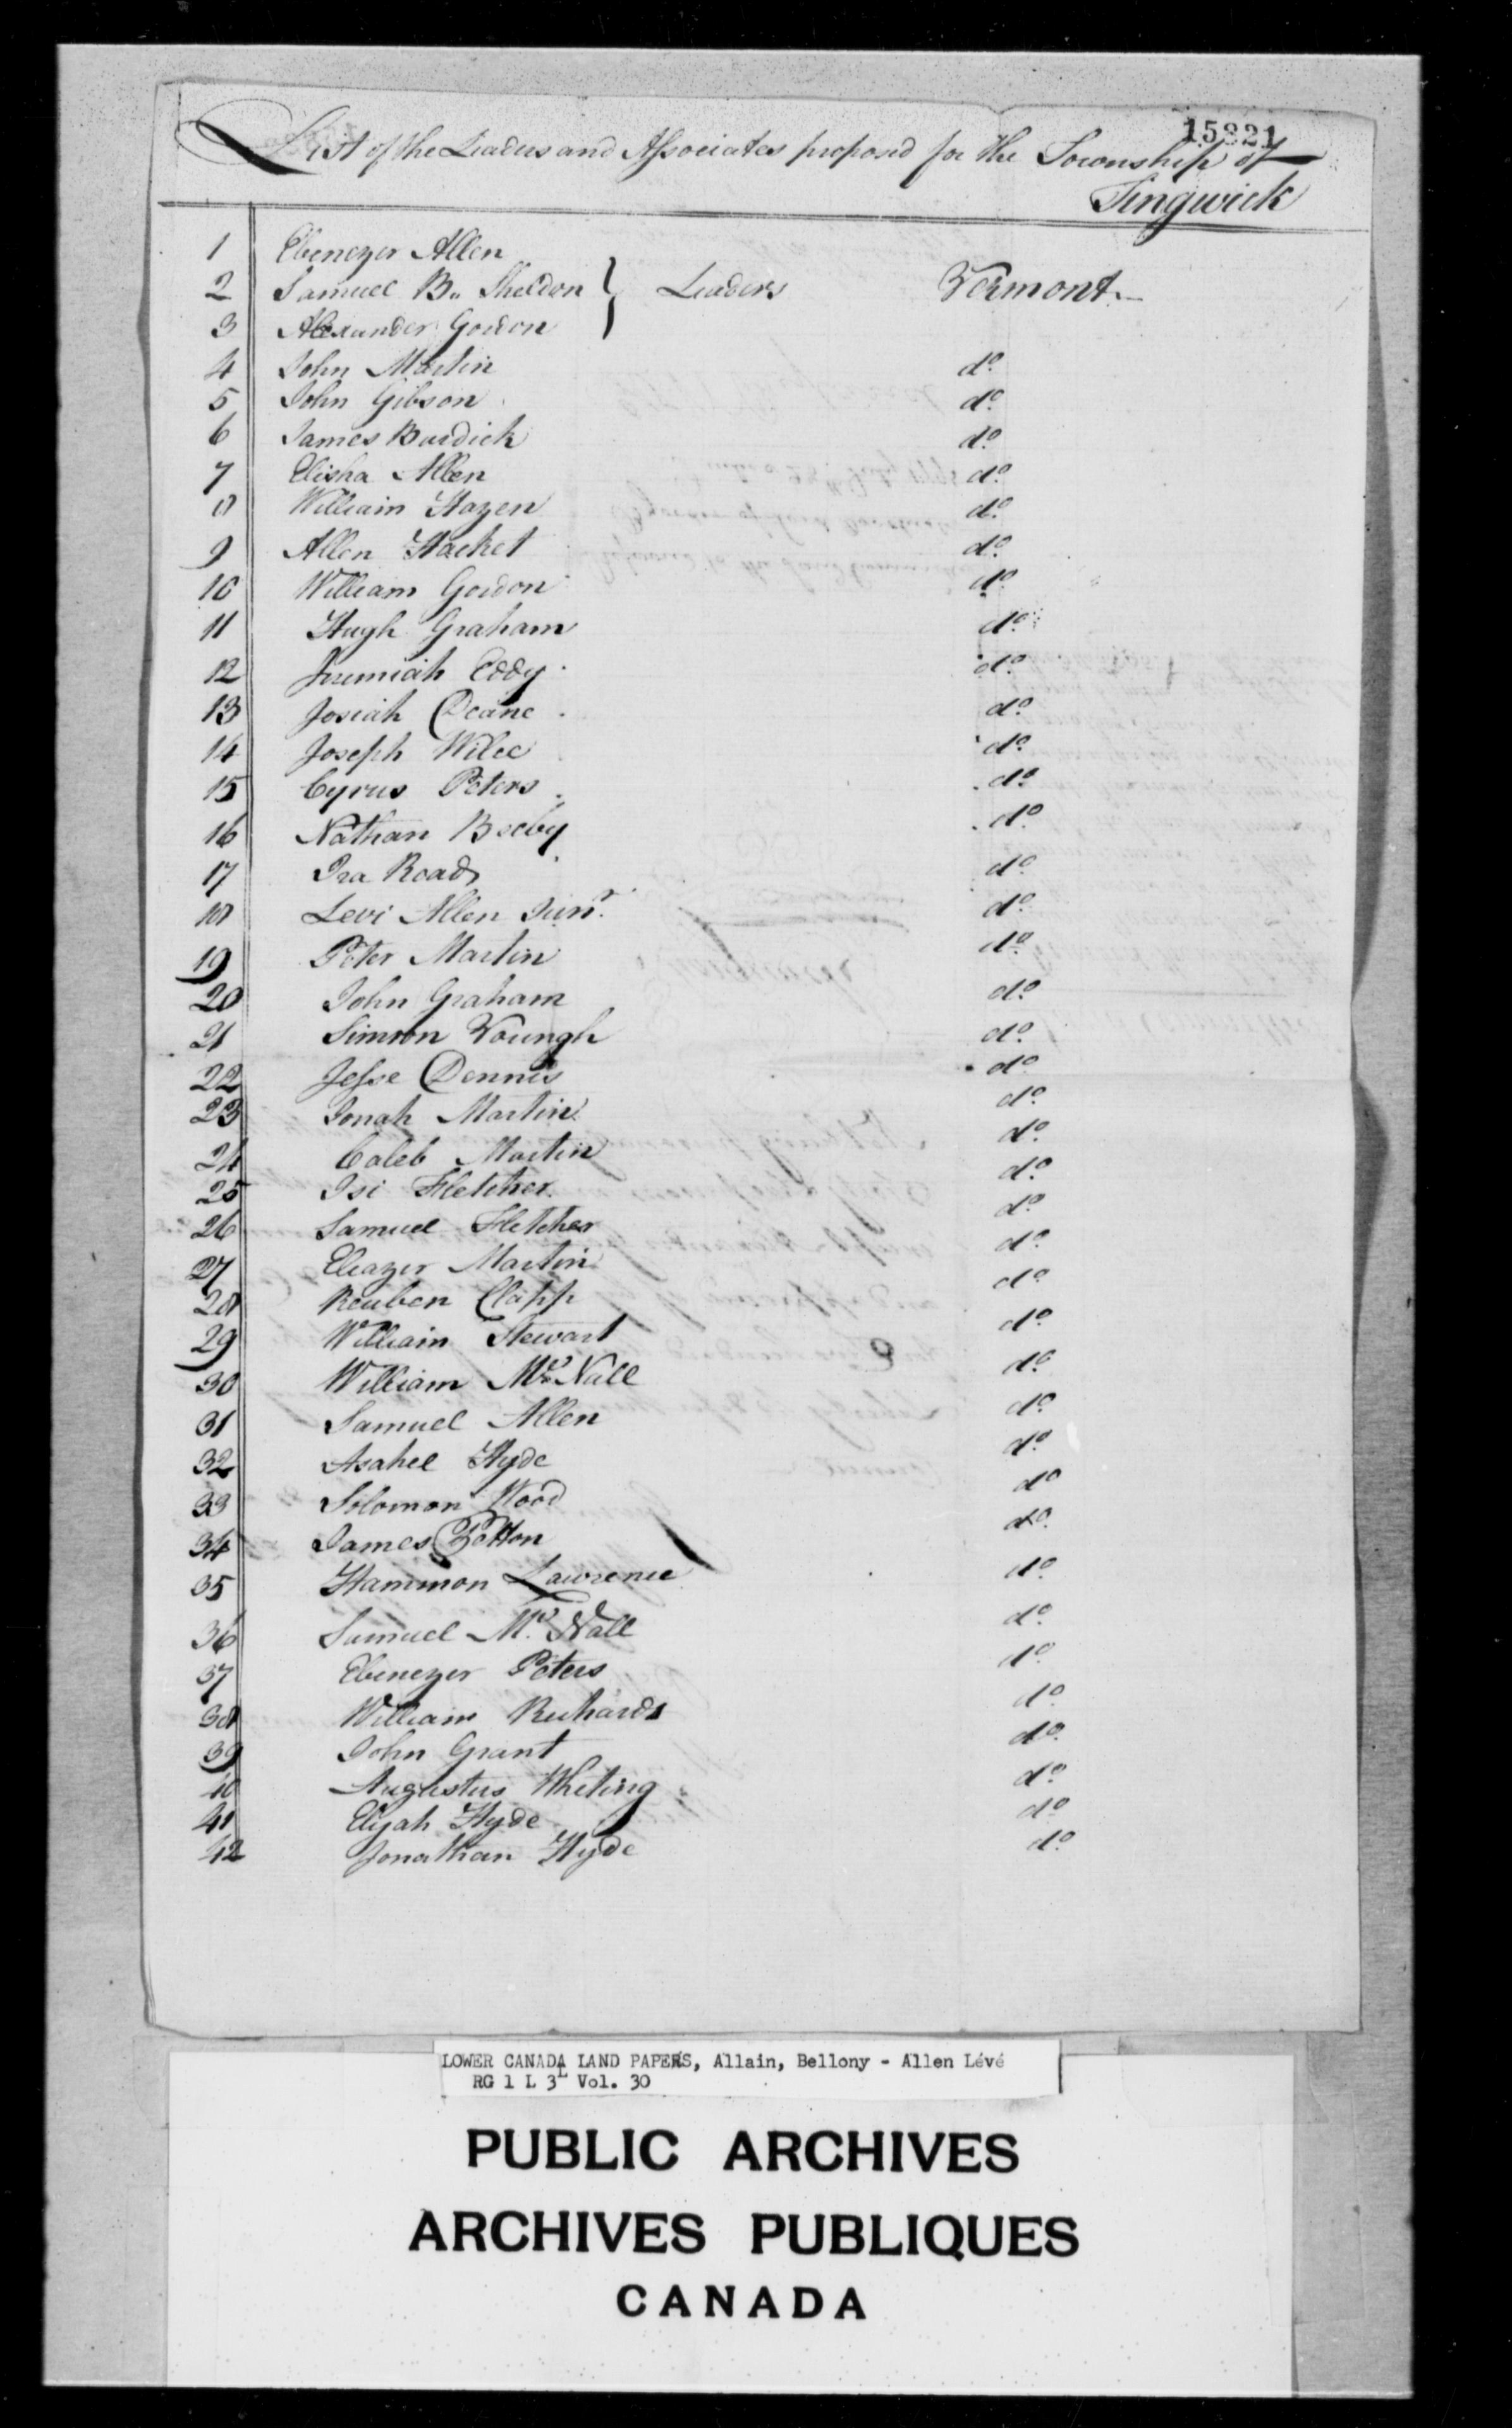 15821
List of the Leaders and Associates proposed for the Township of
Tingwick
1 Ebenezer Allen
2 Samuel B. Sheldon } Leaders Vermont.
3 Alexander Gordon
4 John Martin do
5 John Gibson do
6 James Burdick do
7 Elisha Allen do
8 William Hazen do
9 Allen Hacket do
10 William Gordon do
11 Hugh Graham do
12 Jeremiah Eddy do
13 Josiah Deane do
14 Joseph Wilee do
15 Cyrus Peters do
16 Nathan Beeby do
17 Ira Roads do
18 Levi Allen Junr. do
19 Peter Martin do
20 John Graham do
21 Simon Youngh do
22 Jesse Dennis do
23 Jonah Martin do
24 Caleb Martin do
25 Isi Fletcher do
26 Samuel Fletcher do
27 Eleazer Martin do
28 Reuben Clapp do
29 William Stewart do
30 William Mc Nall do
31 Samuel Allen do
32 Asahel Hyde do
33 Solomon Wood do
34 James do
35 Hammon Lawrence do
36 Samuel Mc Nall do
37 Ebenezer Peters do
38 William Richards do
39 John Grant do
40 Augustus Wheting do
41 Elijah Hyde do
42 Jonathan Hyde do
LOWER CANADA LAND PAPERS, Allain, Bellony - Allen Lévé
RG 1 L 3L Vol. 30
PUBLIC ARCHIVES
ARCHIVES PUBLIQUES
CANADA